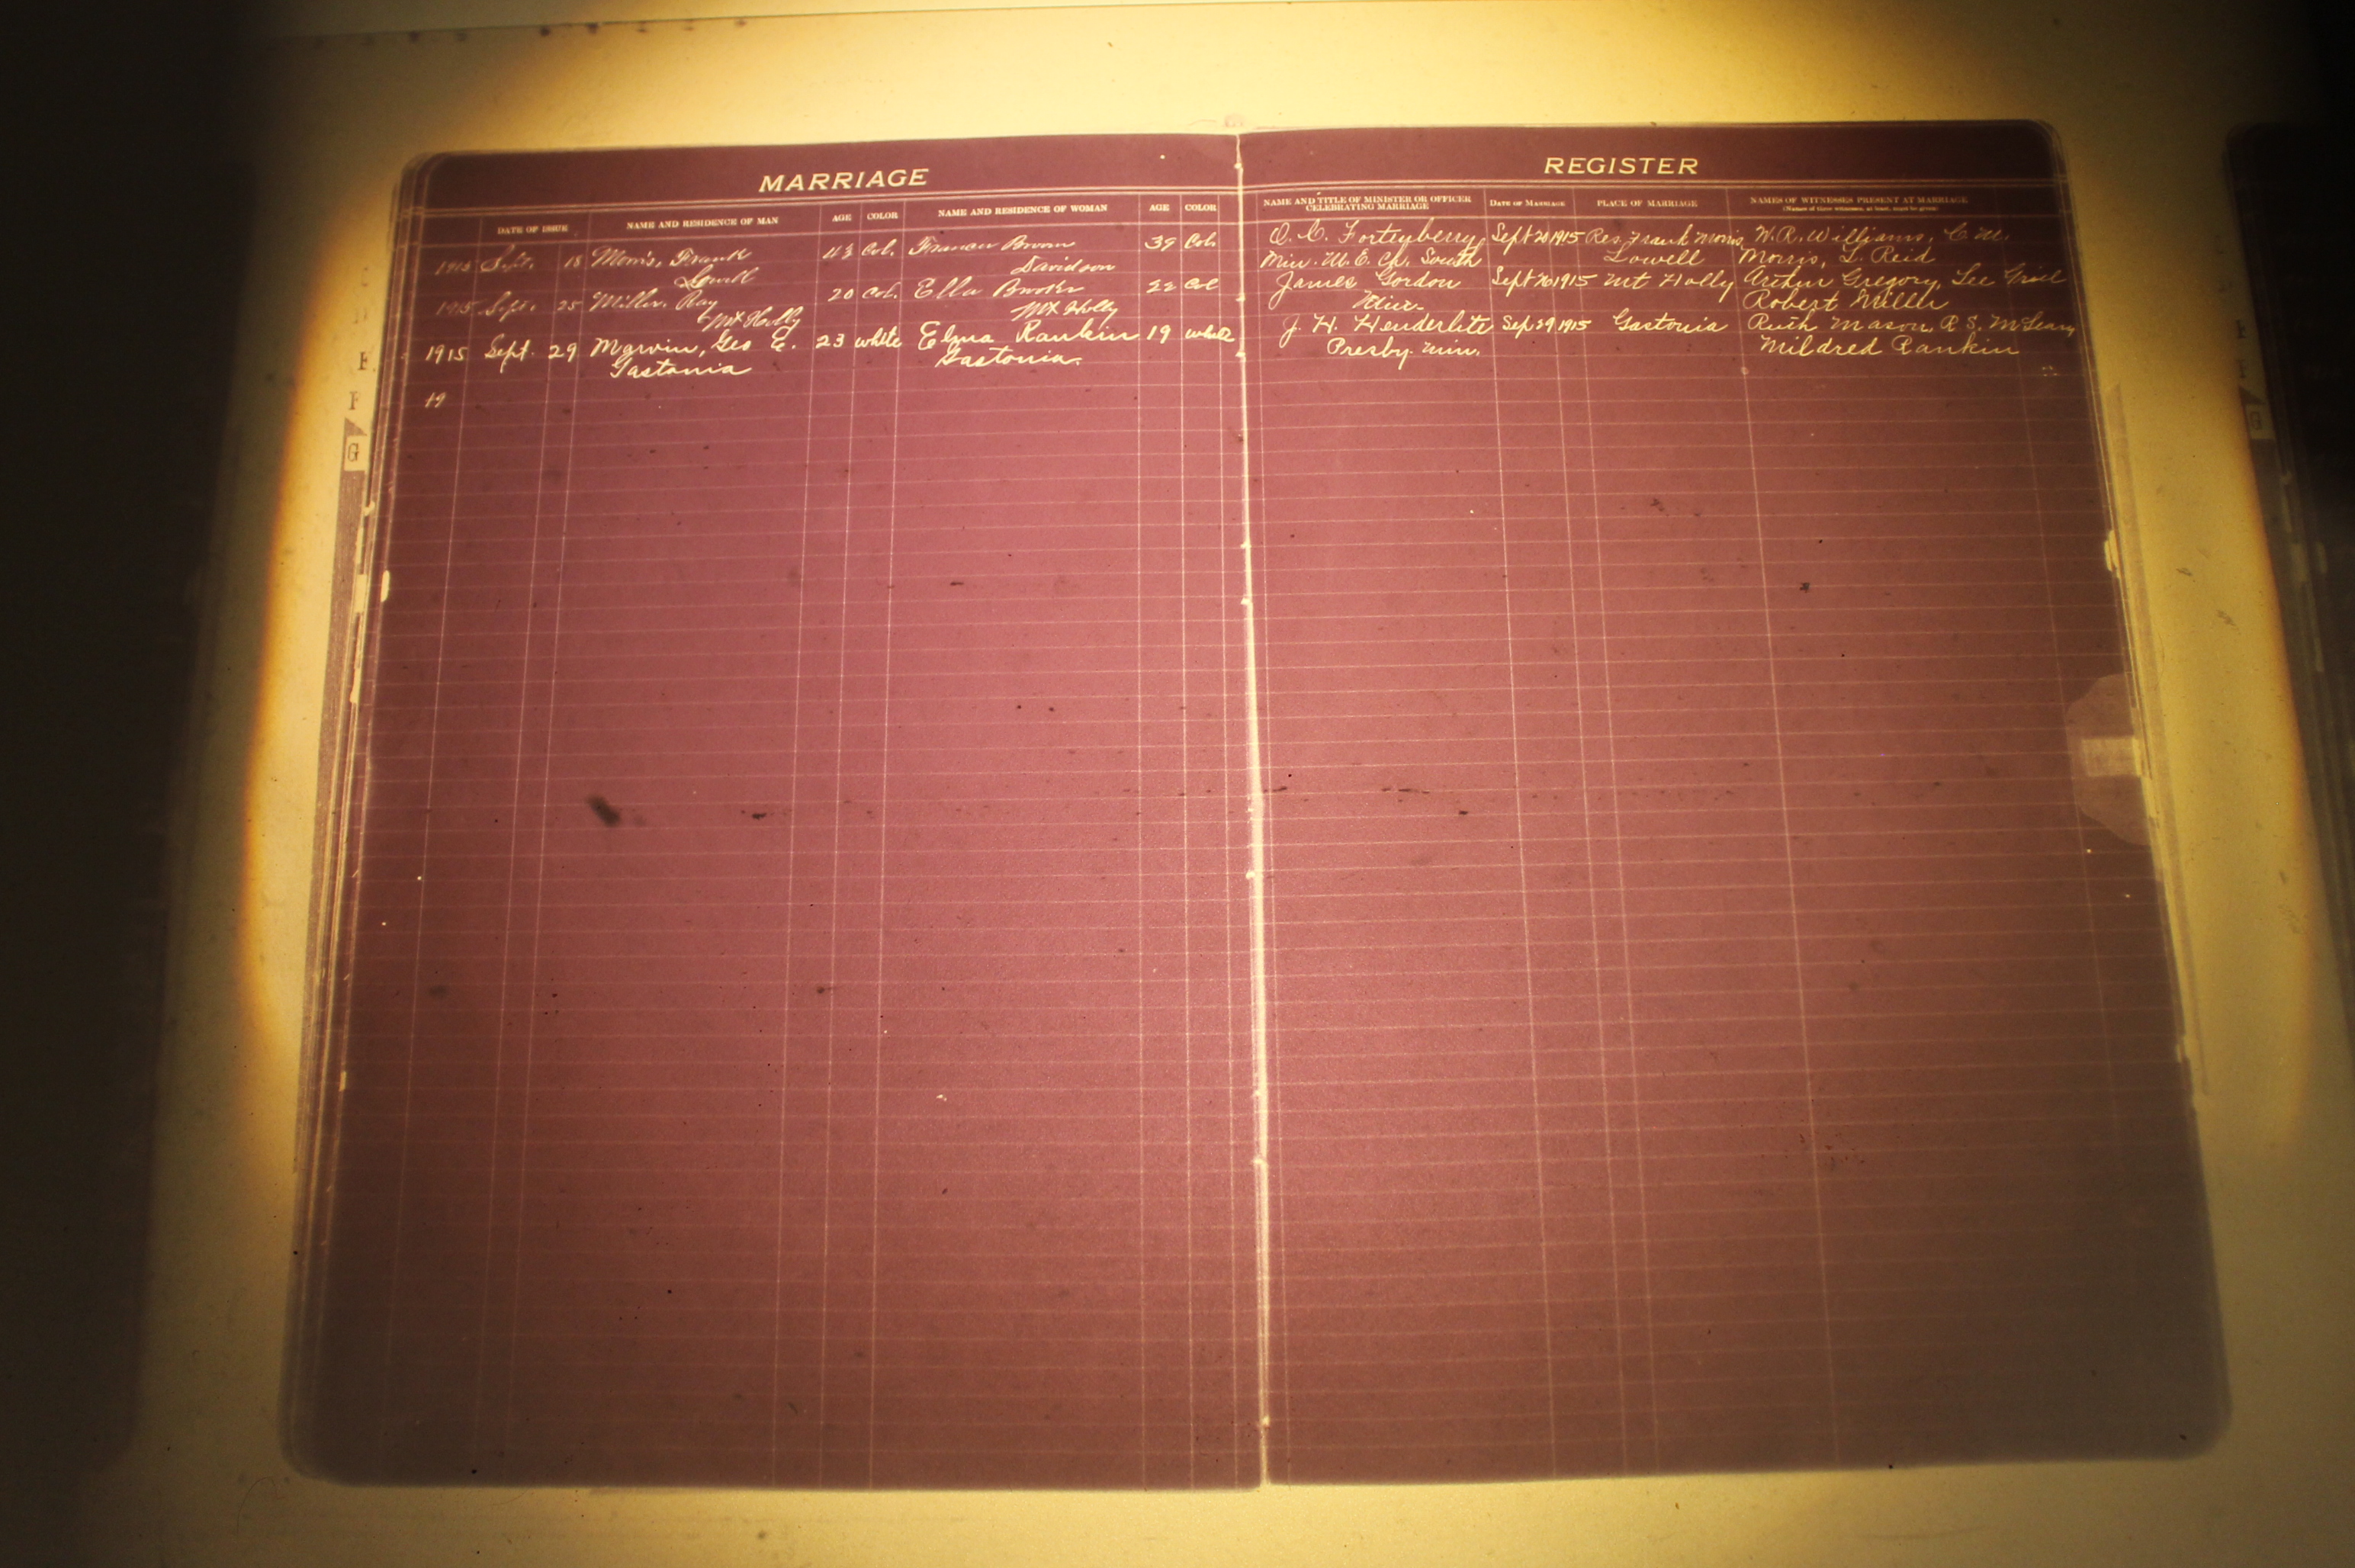 MARRIAGE
REGISTER
DATE OF ISSUE NAME AND RESIDENCE OF MAN AGE COLOR NAME AND RESIDENCE OF WOMAN AGE COLOR NAME AND TITLE OF MINISTER OR OFFICER CELEBRATING MARRIAGE DATE OF MARRIAGE PLACE OF MARRIAGE NAMES OF WITNESSES PRESENT AT MARRIAGE
(Names of three witnesses, at least, must be given)
1915 Sept. 18 Morris, Frank Col. Frances Brown 39 Col. Sept 20 1915 Res. Frank Morris W. R. Williams, C. M.
Lowell Davidson Min. M. E. Ch. South Lowell Morris, L. Reid
1915 Sept. 25 Miller, Ray 20 Col. Ella 22 Col James Gordon Sept 26 1915 Mt Holly Arthur Gregory, Lee
Mt Holly Mt Holly Min. Robert Miller
1915 Sept. 29 Marvin, Geo E. 23 white Rankin 19 white J. H. Henderlite Sep 29 1915 Gastonia Ruth Mason, R. S.
Gastonia Gastonia. Presby. Min. Mildred Rankin
19
E
F
G